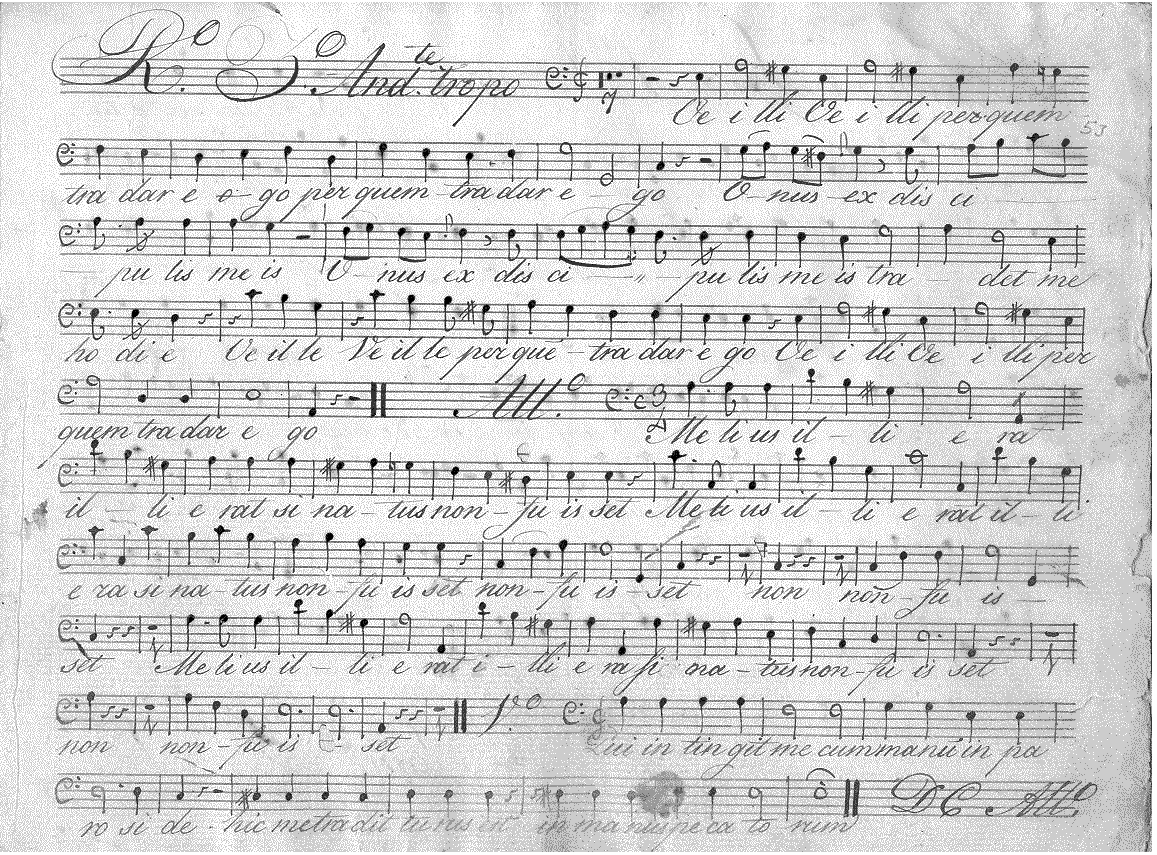 R.º 3.º And.te tropo
Ve i lli Ve i lli per quem
53
tra dar e o-go per quem tra dar e - go O-nus-ex dis ci
pu lis me is O-nus ex dis ci - pu lis me is tra - det me
ho di e Ve il le Ve il le per quē-tra dar e go Ve i lli Ve i lli per
quem tra dar e go All.º Me li us il - li e rat
il - li e rat si na-tus non-fu is set Me li us il - li e rat il-li
e ra si na-tus non-fu is set non-fu is-set non non-fu is-
set Me li us il - li e rat i-lli e ra si na-tus non-fu is set
non non-fu is - set Vº Qui in tin git me cum manū in pa
ro si de-hic me tra dit tu rus est in ma nus pe ca to rum DC All.º